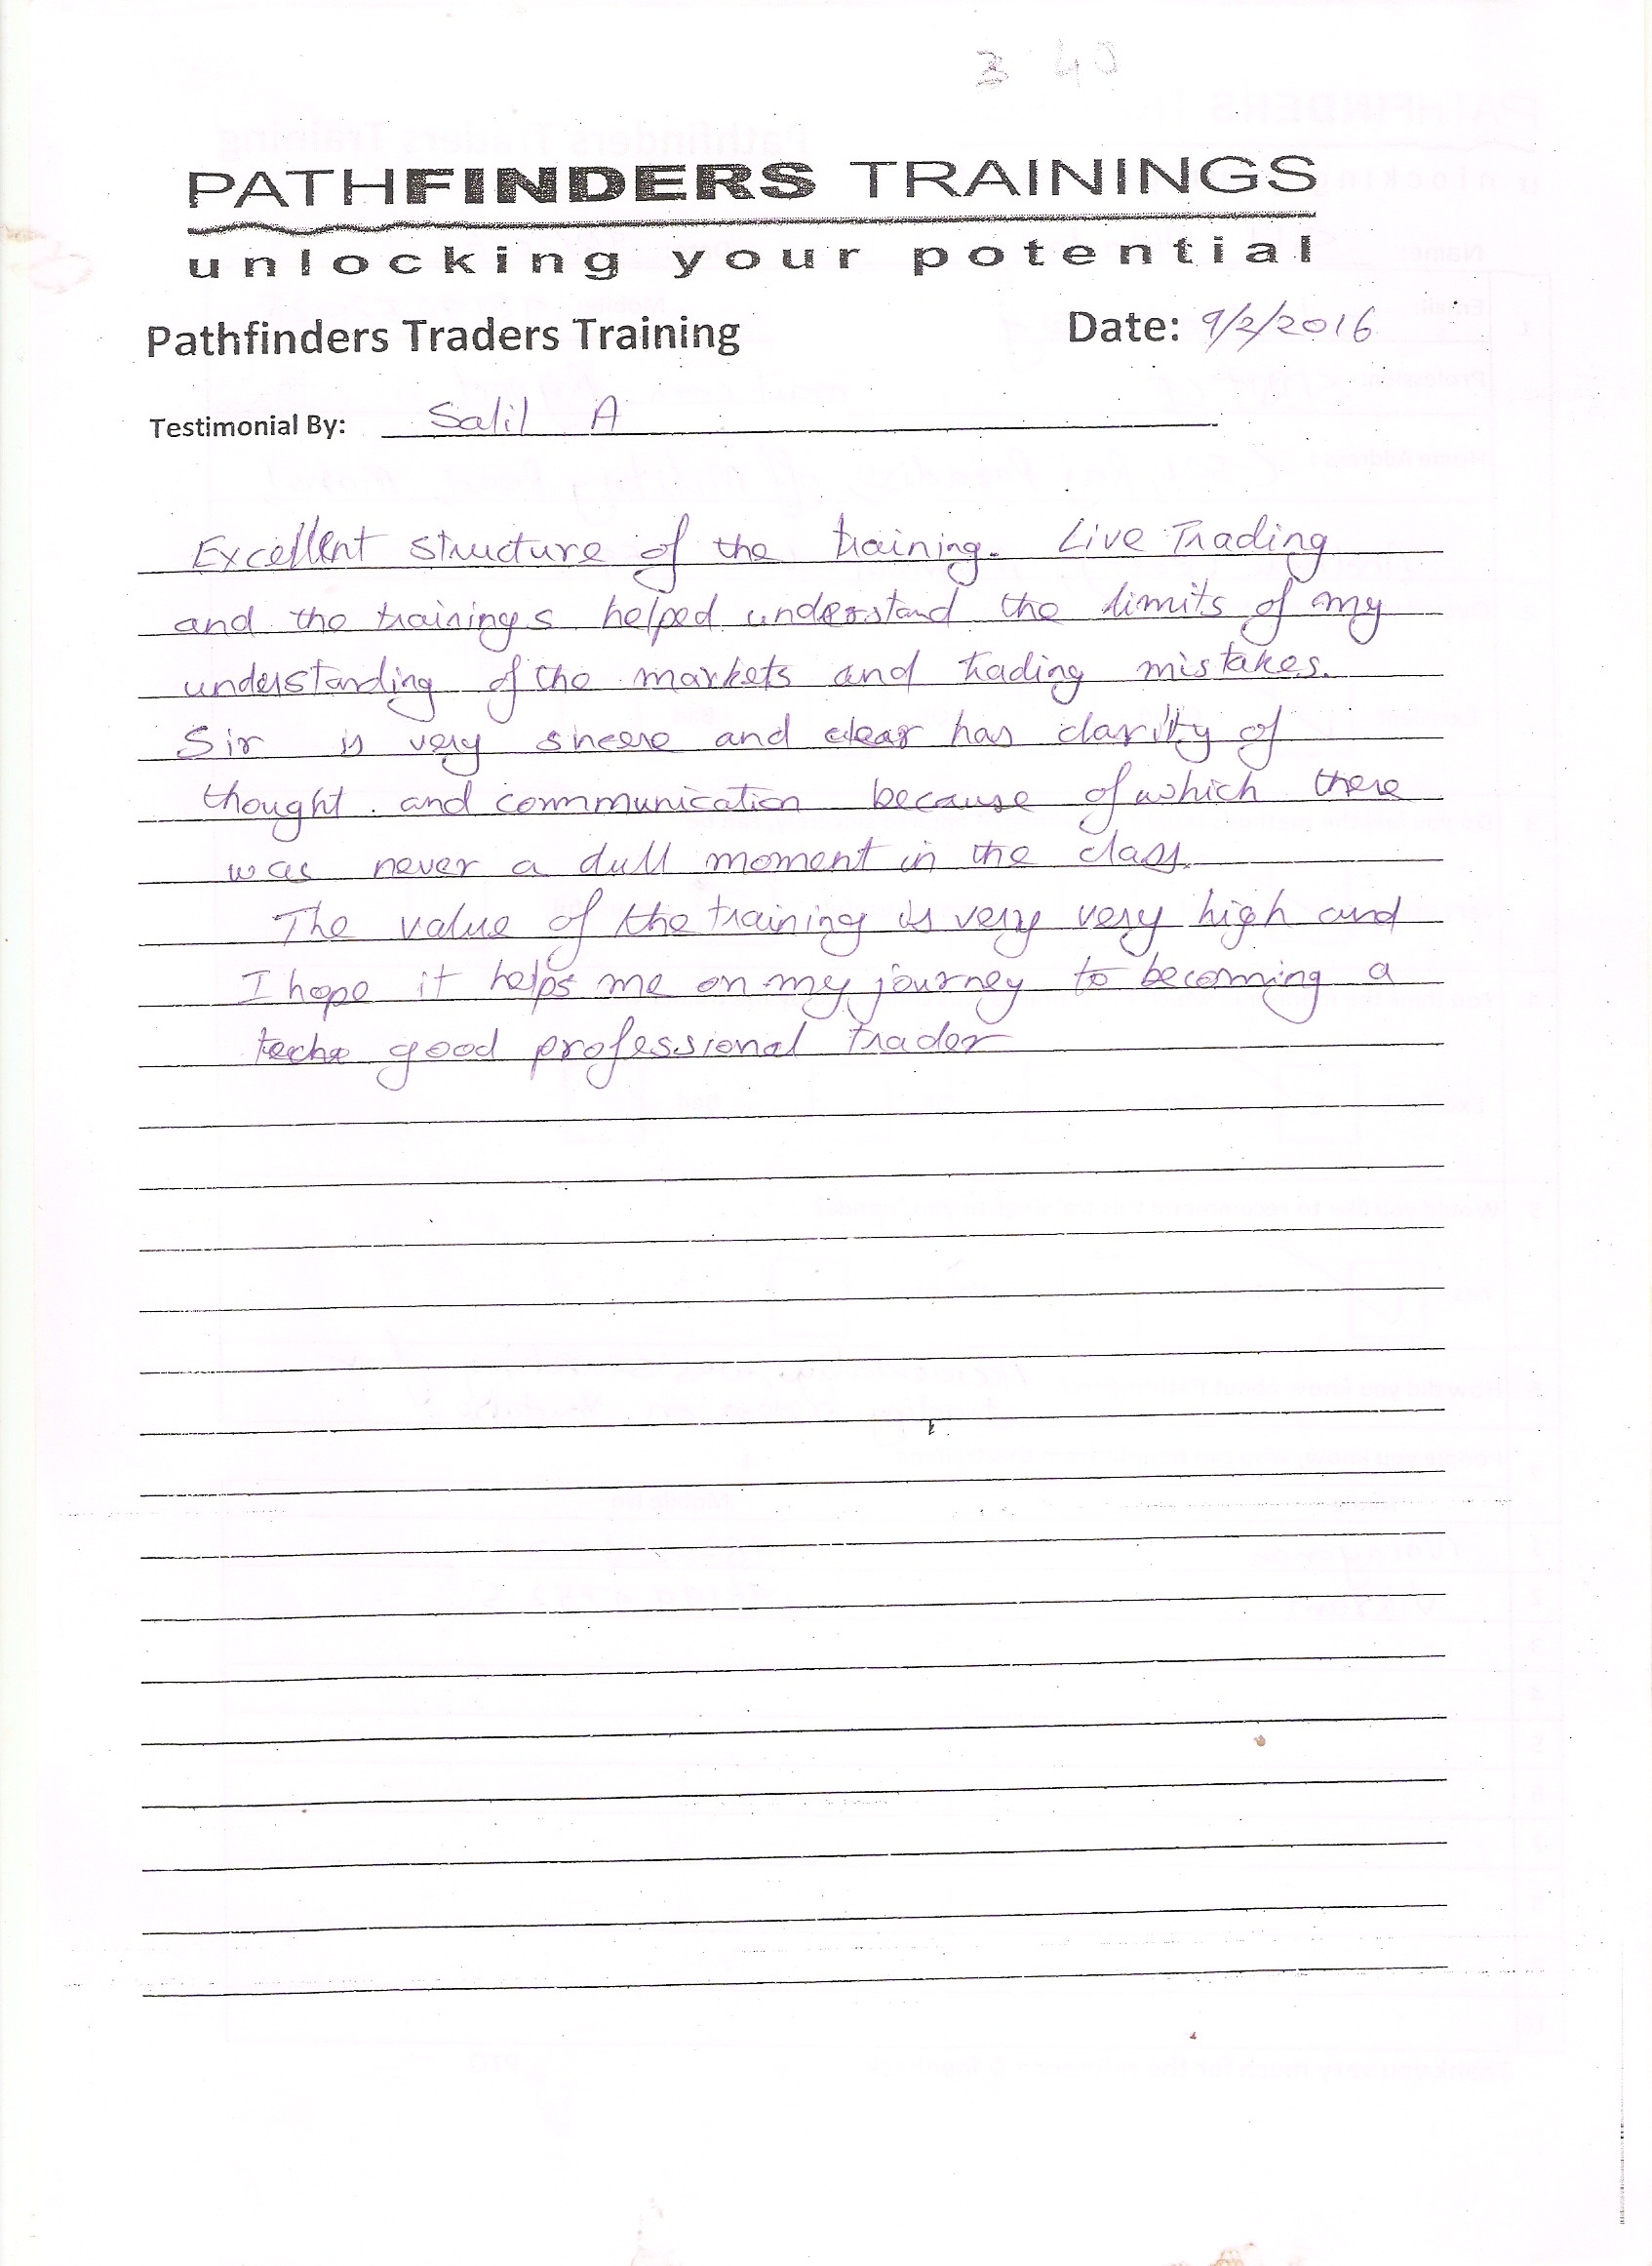 3 40
PATHFINDERS TRAININGS
unlocking your potential
Pathfinders Traders Training Date: 9/2/2016
Testimonial By: Salil A
Excellent structure of the training. Live Trading
and the trainings helped understand the limits of my
understanding of the markets and trading mistakes.
Sir is very sincere and clear has clarity of
thought and communication because of which there
was never a dull moment in the class.
The value of the training is very very high and
I hope it helps me on my journey to becoming a
good professional trader